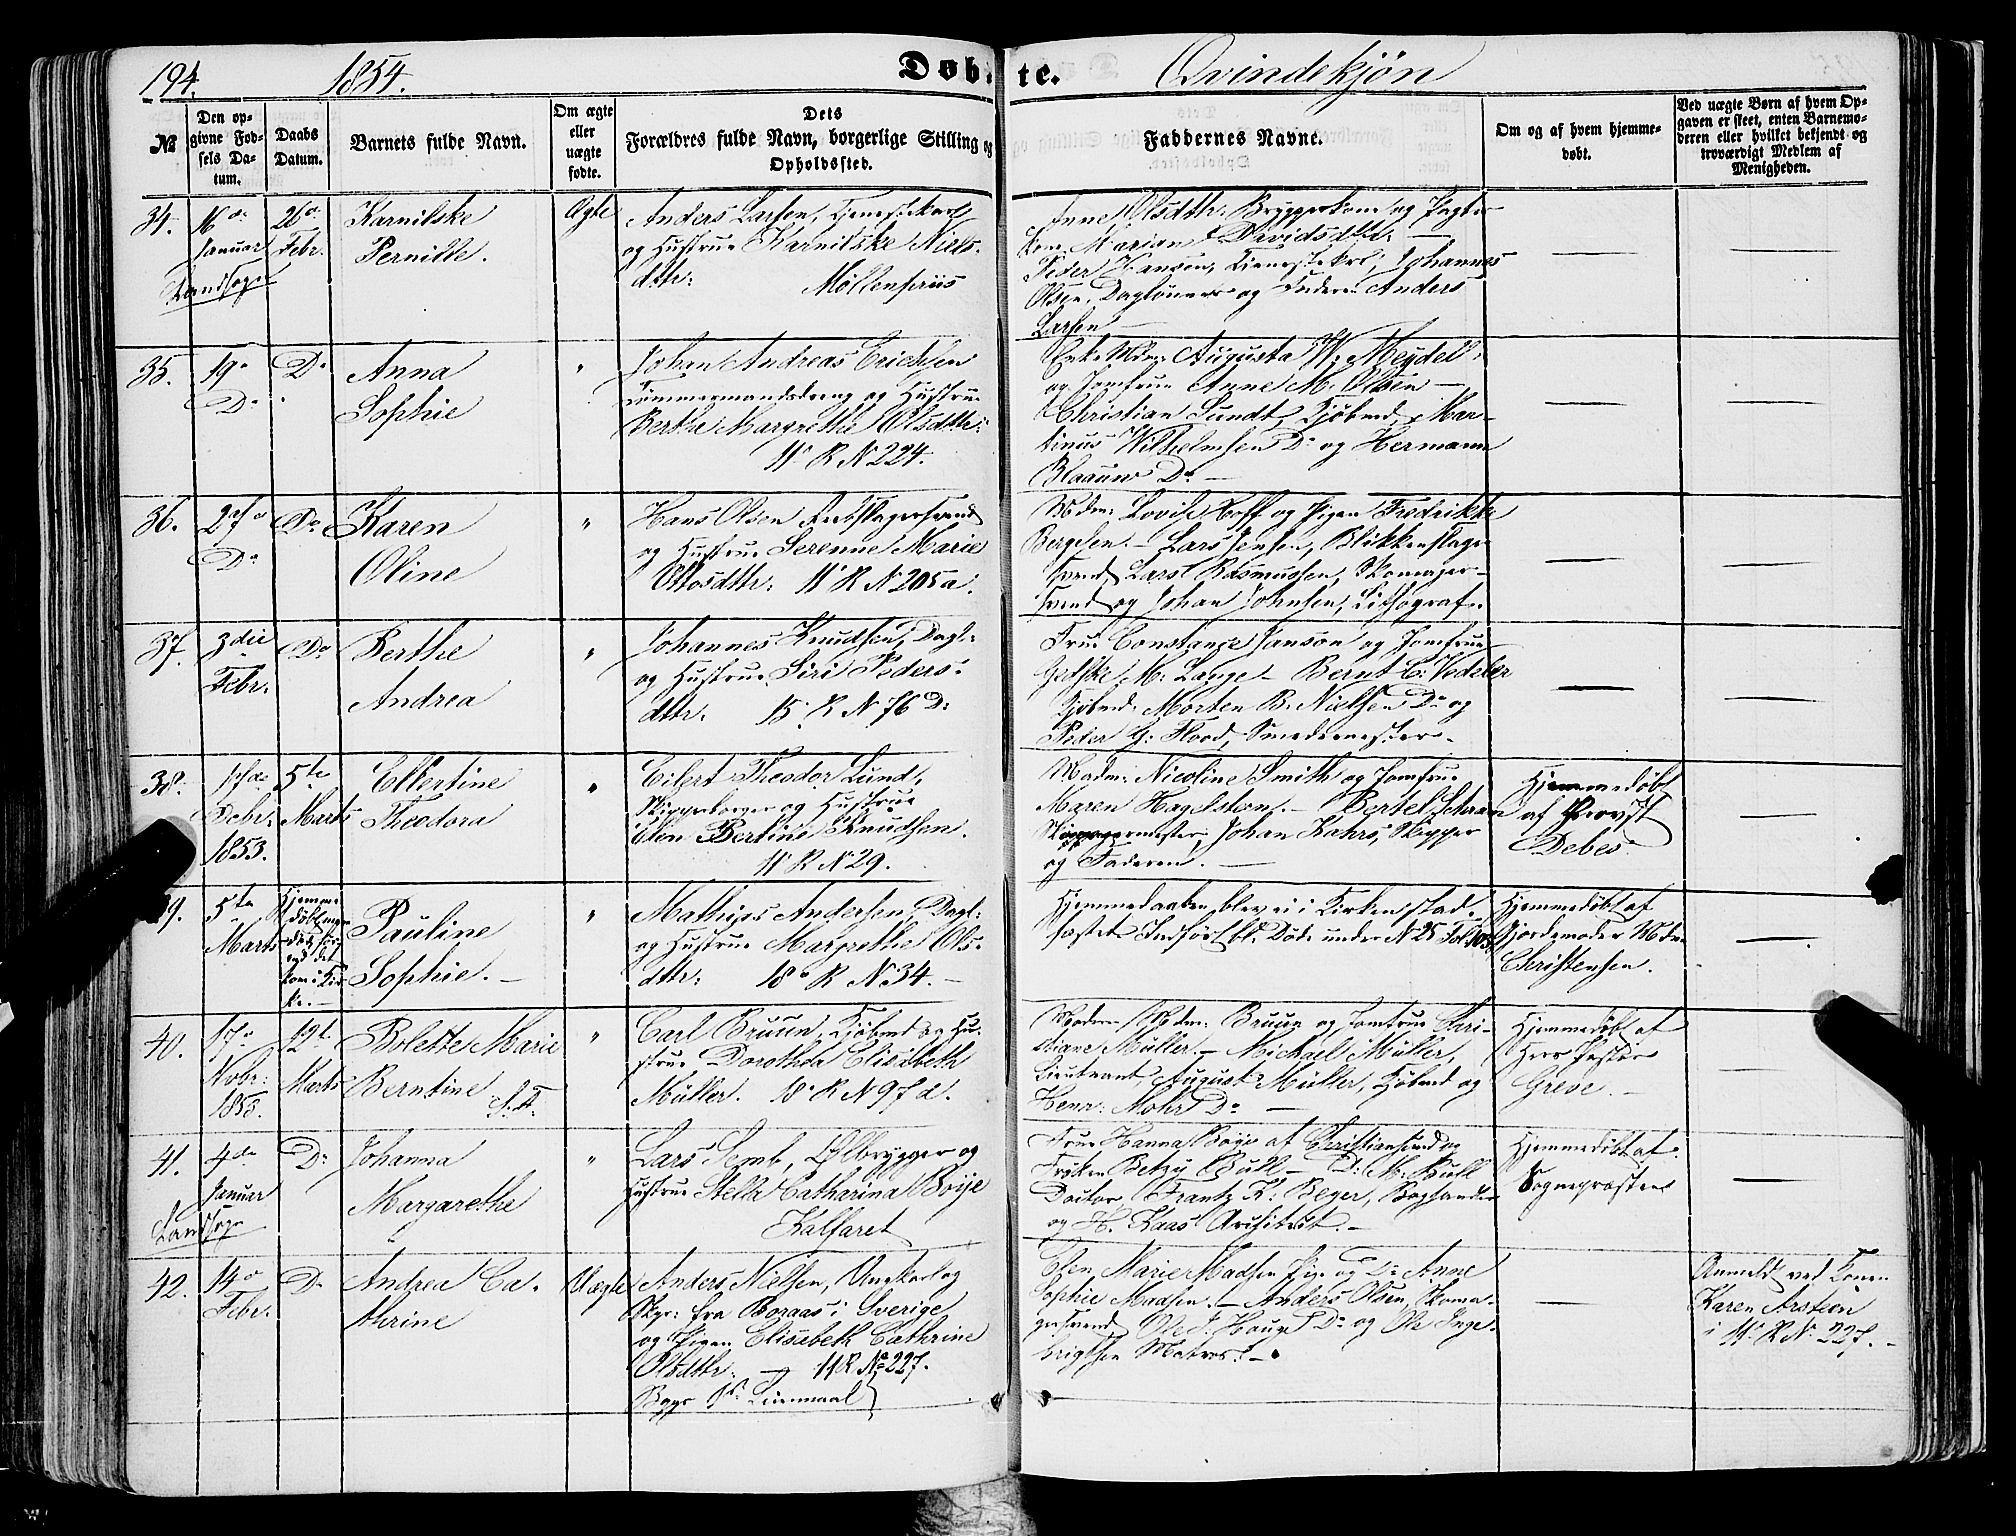 194. 1854. Døbte. Qvindekjøn
№
Den op-
givne Fød-
sels Da-
tum.
Daabs
Datum.
Barnets fulde Navn.
Om ægte
eller
uægte
fødte.
Dets
Forældres fulde Navn, borgerlige Stilling og
Opholdssted.
Faddernes Navne.
Om og af hvem hjemme-
døbt.
Ved uægte Børn af hvem Op-
gaven er skeet, enten Barnemo-
deren eller hvilket bekjendt og
troværdigt Medlem af
Menigheden.
34.
16de
Januar
Landsogn
26de
Febr.
Karnilske
Pernille.
Ægte
Anders Larsen, Tjenestekarl
og Hustrue Karnilske Niels-
dttr: Møllenpriis
Anne Olsdttr: Bryggerkone og Pagter
kone Mariane Davidsdttr:
Peder Hansen, Tjenestekarl, Johannes
Olsen, Daglønner og Faderen Anders
Larsen
35.
19de
Do
Do
Anna
Sophie
"
Johan Andreas Erichsen
Tømmermandsdreng og Hustrue
Berthe Margrethe Olsdttr:
11te R N 224.
Enke Mdm: Augusta W. Meydel
og Jomfrue Anne M. Olsen
Christian Sundt, Kjøbmd, Mar-
tinus Wilhelmsen Do og Hermann
Blaauw Do
36.
27de
Do
Do
Karen
Oline
"
Hans Olsen Rebslagersvend
og Hustrue Serenne Marie
Olsdttr: 11te R N 205a.
Mdm: Lovise Hoff og Pigen Fredrikke
Bergesen. Lars Jensen, Blikkenslager
svend, Lars Rasmussen, Skomager-
svend og Johan Johnsen, Lithograf.
37.
3die
Febr:
Do
Berthe
Andrea
"
Johannes Knudsen, Dagl:
og Hustrue Siri Peders-
dttr. 15 R N 76 D.
Frue Constance Janson og Jomfrue
Geske M. Lange - Bernt C. Vedeler
Kjøbmd: Morten B. Nielsen Do og
Peder G. Flood, Smedemester.
38.
17de
Decbr:
1853.
5te
Marts
Ellertine
Theodora
"
Eilert Theodor Lund,
Skipperborger og Hustrue
Elen Bertine Knudsen.
11 R N 29.
Madm: Nicoline Smith og Jomfrue
Maren Hagelsteen. - Bertel Schram
mester, Johan Kahrs, Skipper
og Faderen.
Hjemmedøbt
af Provst
Debes.
39.
5te
Marts
Hjemme
døbt men
døde før-
end det
kom i Kir-
ke.
Pauline
Sophie.
"
Mathias Andersen, Dagl:
og Hustrue Margrethe Ols-
dttr: 18de R N 34.
Hjemmedaaben blev ei i Kirken stad-
fæstet Indført bl. Døde under N 25 Fol 103
Hjemmedøbt af
Jordemoder Mdm
Christensen.
40.
17de
Nobr:
1853.
12te
Marts
Bolette Marie
Berntine
"
Carl Bruun, Kjøbmd og Hu-
strue Dorothea Elisabeth
Müller. 18 R N 97 d.
Moderen Mdm: Bruun og Jomfrue Chri-
stiane Müller. - Michael Müller,
Lieutnant, August Müller, Kjøbmd og
Henr: Mohr Do
Hjemmedøbt af
Herr Pastor
Greve.
41.
4de
Januar
Landsogn
Do
Johanna
Margarethe
"
Lars Semb, Ølbrygger og
Hustrue Stella Catharina Boije
Kalfaret
Frue Hanna Boije af Christiansund og
Frøken Betzy Bull - D. M. Bull
Doctor, Frantz K: Beyer, Boghandler
og H. Kaas Architect.
Hjemmedøbt af
Sognepræsten
42.
14de
Febr:
Do
Andrea Ca-
thrine
Uægte
Anders Nielsen, Ungkarl og
Skpr: fra Boraas i Sverige
og Pigen Elisabeth Cathrine
Olsdttr. 11 R No 227.
Begges 1ste Leiermaal
Elen Marie Madsen Pige og Do Anne
Sophie Madsen. - Anders Olsen, Skoma-
gersvend Ole J. Hauge Do og Ole Inge-
brigtsen Matros.
Anmeldt ved Konen
Karen Arsteen
i 11te R N 227.